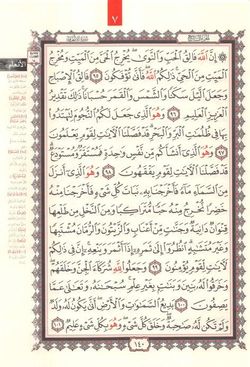 ٧
إِنَّ ٱللَّهَ فَالِقُ ٱلْحَبِّ وَٱلنَّوَىٰ يُخْرِجُ ٱلْحَىَّ مِنَ ٱلْمَيِّتِ وَمُخْرِجُ
ٱلْمَيِّتِ مِنَ ٱلْحَىِّ ذَٰلِكُمُ ٱللَّهُ فَأَنَّىٰ تُؤْفَكُونَ ٩٥ فَالِقُ ٱلْإِصْبَاحِ
وَجَعَلَ ٱلَّيْلَ سَكَنًا وَٱلشَّمْسَ وَٱلْقَمَرَ حُسْبَانًا ذَٰلِكَ تَقْدِيرُ
ٱلْعَزِيزِ ٱلْعَلِيمِ ٩٦ وَهُوَ ٱلَّذِى جَعَلَ لَكُمُ ٱلنُّجُومَ لِتَهْتَدُوا۟
بِهَا فِى ظُلُمَٰتِ ٱلْبَرِّ وَٱلْبَحْرِ قَدْ فَصَّلْنَا ٱلْـَٔايَٰتِ لِقَوْمٍ يَعْلَمُونَ
٩٧ وَهُوَ ٱلَّذِىٓ أَنشَأَكُم مِّن نَّفْسٍ وَٰحِدَةٍ فَمُسْتَقَرٌّ وَمُسْتَوْدَعٌ
قَدْ فَصَّلْنَا ٱلْـَٔايَٰتِ لِقَوْمٍ يَفْقَهُونَ ٩٨ وَهُوَ ٱلَّذِىٓ أَنزَلَ
مِنَ ٱلسَّمَآءِ مَآءً فَأَخْرَجْنَا بِهِۦ نَبَاتَ كُلِّ شَىْءٍ فَأَخْرَجْنَا مِنْهُ
خَضِرًا نُّخْرِجُ مِنْهُ حَبًّا مُّتَرَاكِبًا وَمِنَ ٱلنَّخْلِ مِن طَلْعِهَا
قِنْوَانٌ دَانِيَةٌ وَجَنَّٰتٍ مِّنْ أَعْنَابٍ وَٱلزَّيْتُونَ وَٱلرُّمَّانَ مُشْتَبِهًا
وَغَيْرَ مُتَشَٰبِهٍ ٱنظُرُوٓا۟ إِلَىٰ ثَمَرِهِۦٓ إِذَآ أَثْمَرَ وَيَنْعِهِۦٓ إِنَّ فِى ذَٰلِكُمْ
لَـَٔايَٰتٍ لِّقَوْمٍ يُؤْمِنُونَ ٩٩ وَجَعَلُوا۟ لِلَّهِ شُرَكَآءَ ٱلْجِنَّ وَخَلَقَهُمْ
وَخَرَقُوا۟ لَهُۥ بَنِينَ وَبَنَٰتٍۭ بِغَيْرِ عِلْمٍ سُبْحَٰنَهُۥ وَتَعَٰلَىٰ عَمَّا
يَصِفُونَ ١٠٠ بَدِيعُ ٱلسَّمَٰوَٰتِ وَٱلْأَرْضِ أَنَّىٰ يَكُونُ لَهُۥ وَلَدٌ
وَلَمْ تَكُن لَّهُۥ صَٰحِبَةٌ وَخَلَقَ كُلَّ شَىْءٍ وَهُوَ بِكُلِّ شَىْءٍ عَلِيمٌ ١٠١
١٤٠